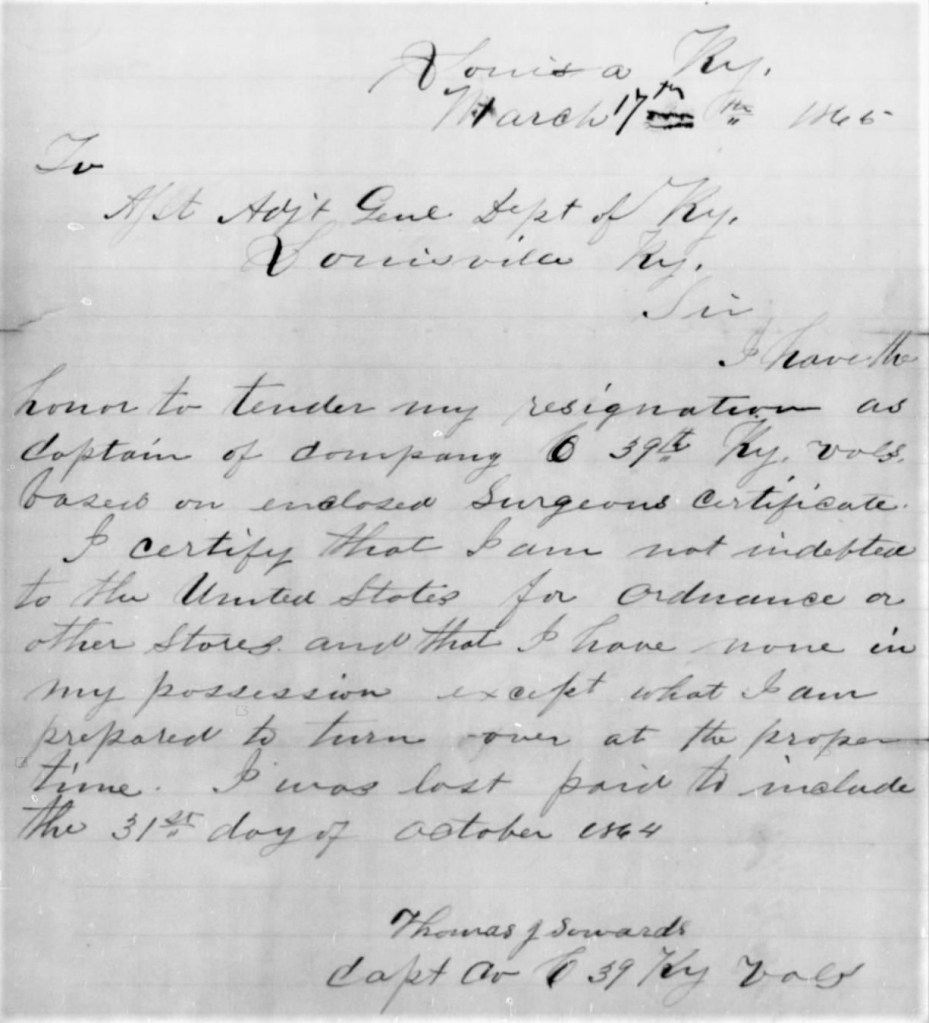 Louisa Ky.
March 17th th 1865
To
Asst Adjt Genl Dept of Ky.
Louisville Ky.
Sir
I have the
honor to tender my resignation as
Captain of Company C 39th Ky. Vols.
based on enclosed Surgeons Certificate.
I certify that I am not indebted
to the United States for Ordnance or
other Stores and that I have none in
my possession except what I am
prepared to turn over at the proper
time. I was last paid to include
the 31st day of October 1864
Thomas J Sowards
Capt Co C 39 Ky Vols